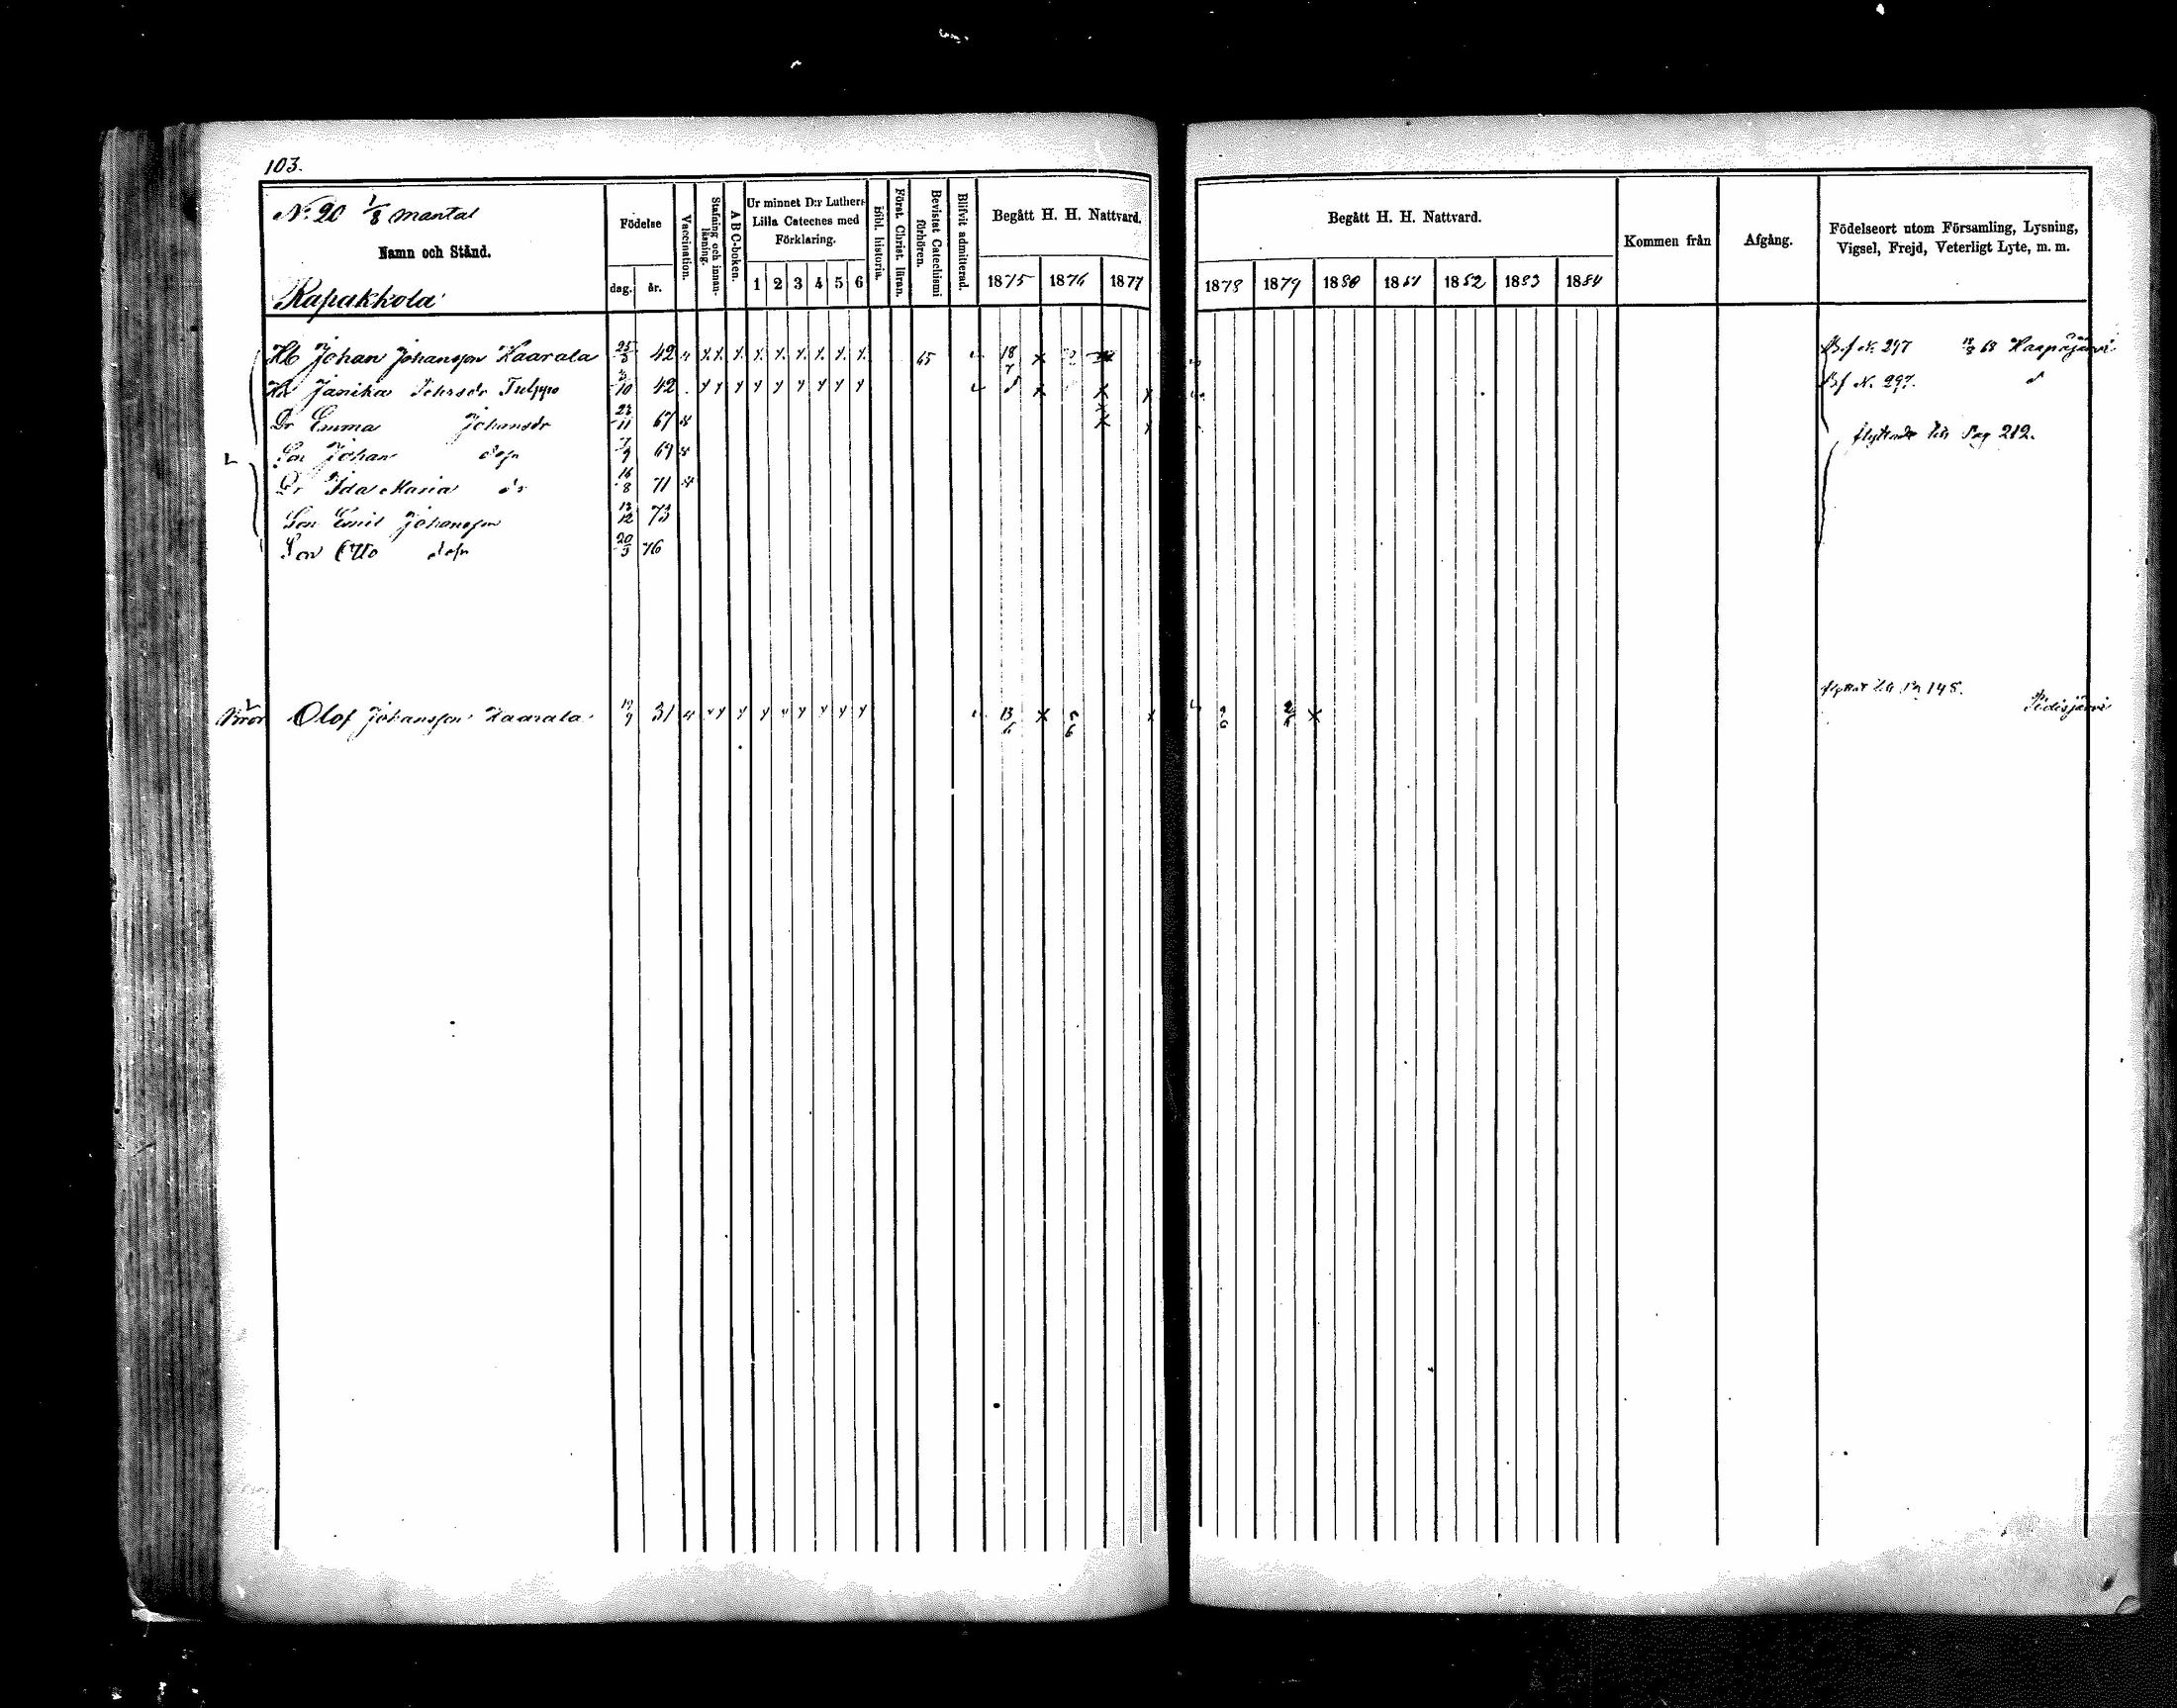 103.
No 20 1/8 mantal
Namn och Stånd.
Kapakkola
Födelse
dag. år.
Vaccination.
Stafning och innanläsning.
A B C-boken.
Ur minnet D:r Luthers Lilla Cateches med Förklaring.
1 2 3 4 5 6
Bibl. historia.
Först. Christ. läran.
Bevistat Catechismi förhören.
Blifvit admitterad.
Begått H. H. Nattvard.
1875 1876 1877
Begått H. H. Nattvard.
1878 1879 1880 1881 1882 1883 1884
Kommen från
Afgång.
Födelseort utom Församling, Lysning, Vigsel, Frejd, Veterligt Lyte, m. m.
Hb Johan Johansson Haarala 25/3 42 65 18/7 Bf No 297 68 Haapajärvi
Hu Janika Johsdr Tulppo 10 42 Bf N. 297.
Dr Emma Johansdr 23/11 67
flyttade till Pag 212.
Son Johan dosn 7/9 69
Dr Ida Maria dr 16/8 71
Son Emil Johansson 12/12 73
Son Otto dosn 20/3 76
flyttat till Pag 145.
Bror Olof Johansson Haarala 9 31 13/6 6/6 Pidisjärvi